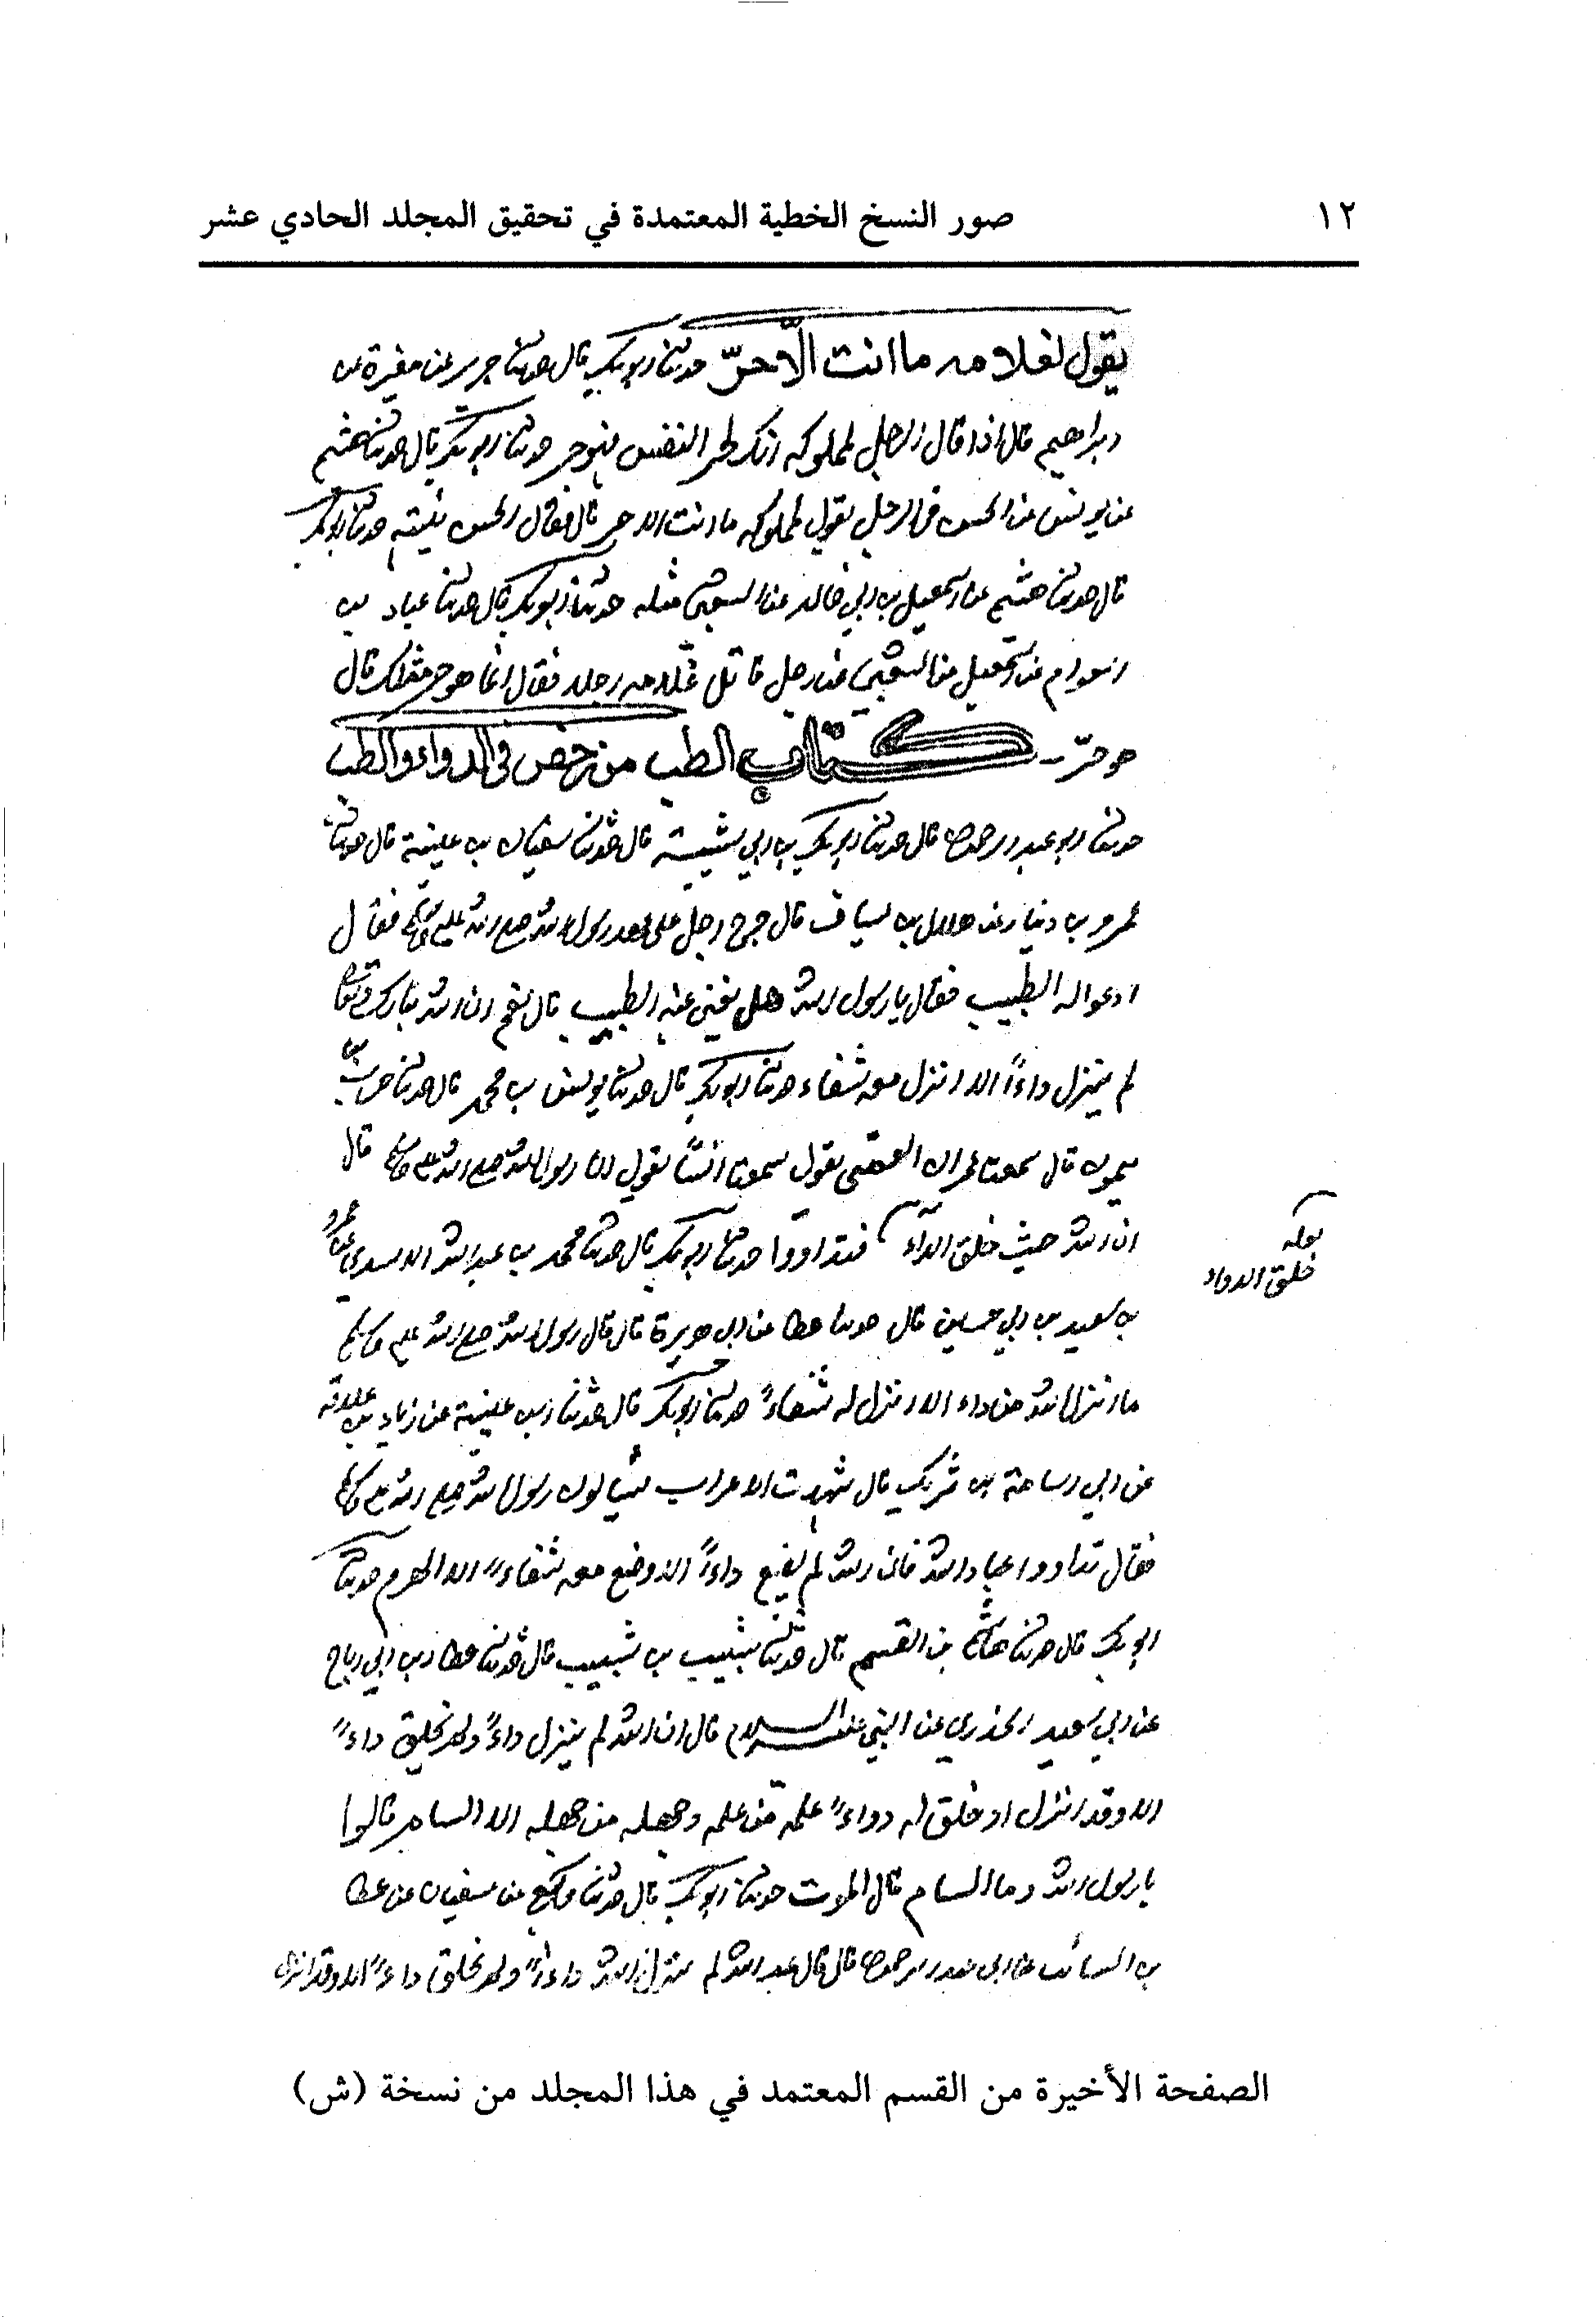 ١٢
صور النسخ الخطية المعتمدة في تحقيق المجلد الحادي عشر
يقول لغلامه ما انت الّا حرّ حدثنا ابو بكر قال حدثنا جرير عن مغيرة عن
ابراهيم قال اذا قال الرجل لمملوكه انك لحر النفس فهو حر حدثنا ابو بكر قال حدثنا هشيم
عن يونس عن الحسن في الرجل يقول لمملوكه ما انت الا حر قال فقال الحسن نيته حدثنا ابو بكر
قال حدثنا هشيم عن اسمعيل بن ابي خالد عن الشعبي مثله حدثنا ابو بكر قال حدثنا عباد بن
العوام عن اسمعيل عن الشعبي في رجل قاتل غلامه رجلا فقال انما هو حر مثلك قال
هو حرّ كتاب الطب من رخص في الدواء والطب
حدثنا ابو عبد الرحمن قال حدثنا ابو بكر بن ابي شيبة قال حدثنا سفيان بن عيينة قال حدثنا
عمرو بن دينار عن هلال بن يساف قال جرح رجل على عهد رسول الله صلى الله عليه وسلم فقال
ادعوا له الطبيب فقال يا رسول الله هل يغني عنه الطبيب قال نعم ان الله تبارك وتعالى
لم ينزل داءً الا انزل معه شفاء حدثنا ابو بكر قال حدثنا يونس بن محمد قال حدثنا حرب بن
ميمون قال سمعت عمران العمي يقول سمعت انسًا يقول ان رسول الله صلى الله عليه وسلم قال
ان الله حيث خلق الداء فتداووا حدثنا ابو بكر قال حدثنا محمد بن عبد الله الاسدي عن عمر
خلق الدواء
بن سعيد بن ابي حسين قال حدثنا عطا عن ابي هريرة قال قال رسول الله صلى الله عليه وسلم
ما انزل الله من داء الا انزل له شفاءً حدثنا ابو بكر قال حدثنا ابن عيينة عن زياد بن علاقة
عن اسامة بن شريك قال شهدت الاعراب يسألون رسول الله صلى الله عليه وسلم
فقال تداووا عباد الله فان الله لم يضع داءً الا وضع معه شفاءً الا الهرم حدثنا
ابو بكر قال حدثنا هاشم بن القسم قال حدثنا شبيب بن شيبة قال حدثنا عطا بن ابي رباح
عن ابي سعيد الخدري عن النبي عليه السلام قال ان الله لم ينزل داءً ولم يخلق داءً
الا وقد انزل او خلق له دواءً علمه من علمه وجهله من جهله الا السام قالوا
يا رسول الله وما السام قال الموت حدثنا ابو بكر قال حدثنا وكيع عن سفيان عن عطا
بن السائب عن ابي عبد الرحمن قال قال عبد الله لم ينزل الله داءً ولم يخلق داءً الا وقد انزل
الصفحة الأخيرة من القسم المعتمد في هذا المجلد من نسخة (ش)